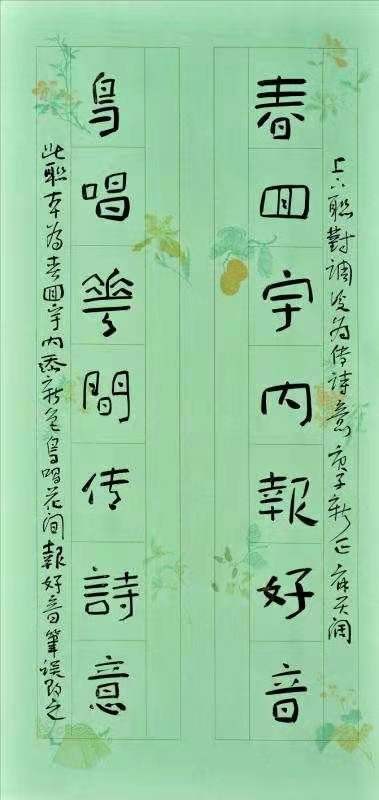 上下聯對調後为传詩意 庚子新正天阔
春囬宇内報好音
鳥唱華間传詩意
此聯本为春囬宇内添新色鸟唱花间報好音筆误改之